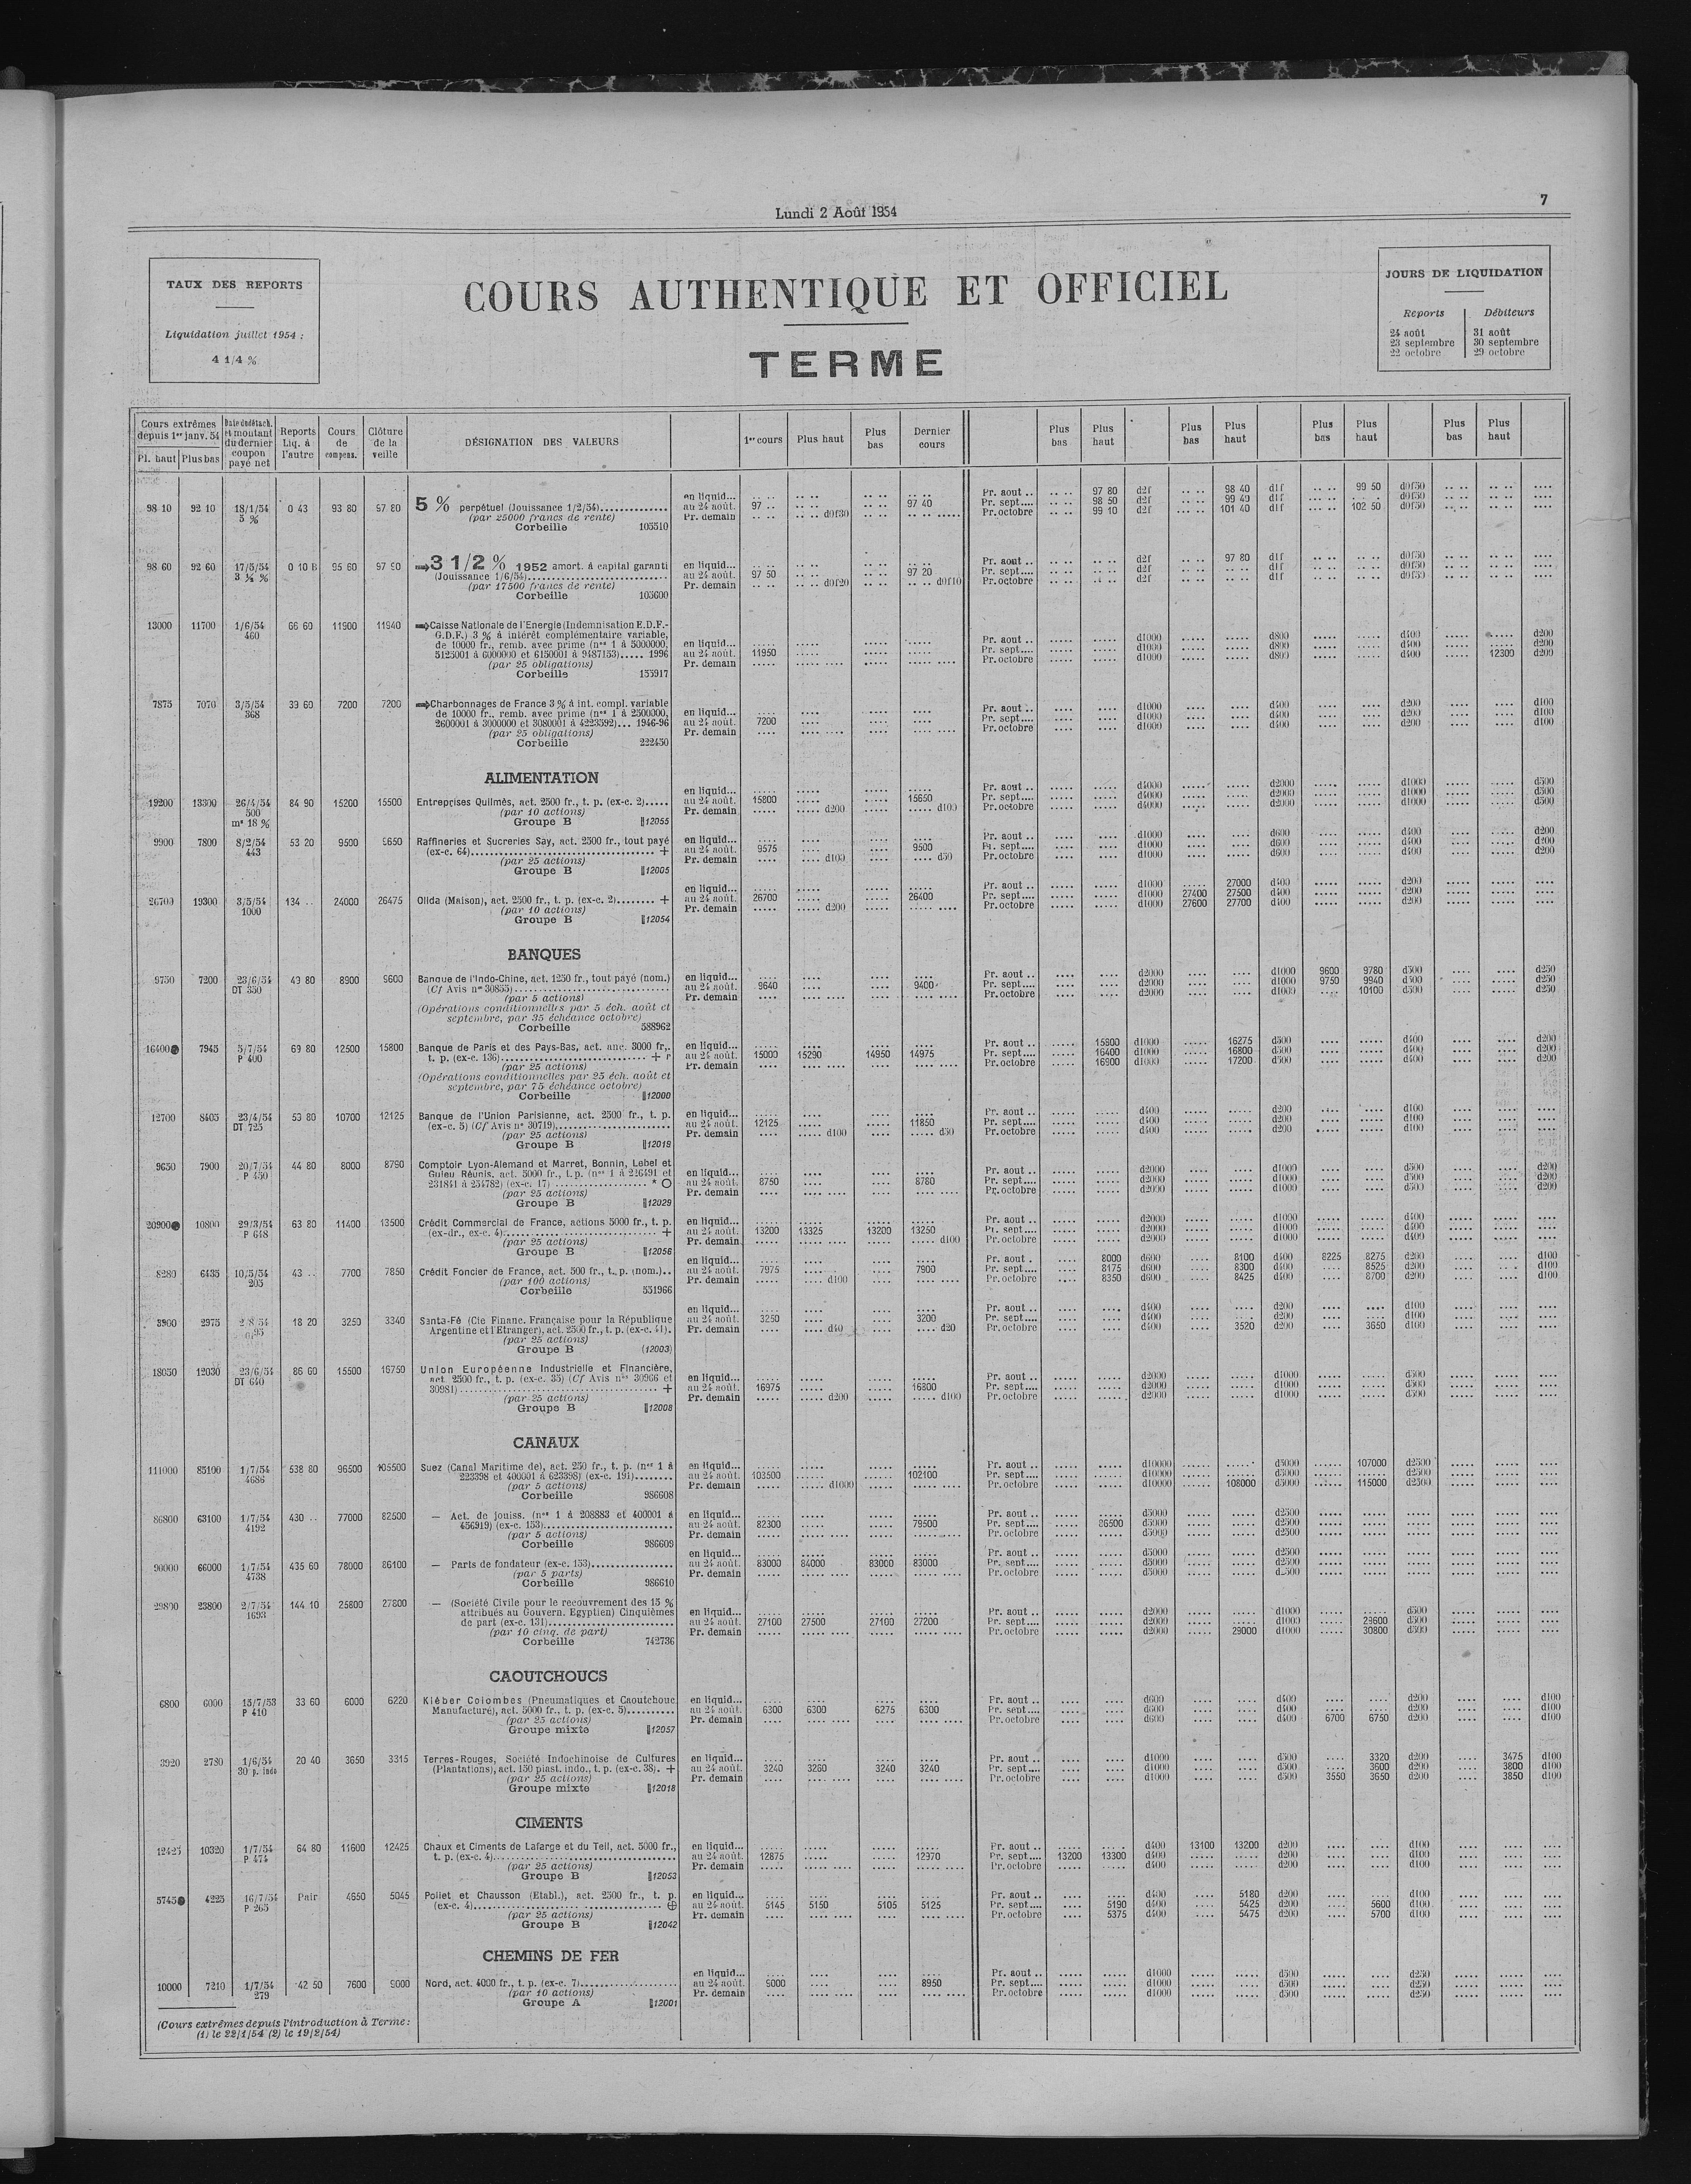 Lundi 2 Août 1954
7
TAUX DES REPORTS
Liquidation juillet 1954 :
4 1/4 %
COURS AUTHENTIQUE ET OFFICIEL
TERME
JOURS DE LIQUIDATION
Reports Débiteurs
24 août 31 août
23 septembre 30 septembre
22 octobre 29 octobre
Cours extrêmes depuis 1er janv. 54
Pl. haut Plus bas
Date du détach. et montant du dernier coupon payé net
Reports Liq. à l'autre
Cours de compens.
Clôture de la veille
DÉSIGNATION DES VALEURS
1er cours Plus haut Plus bas Dernier cours
Plus bas Plus haut Plus bas Plus haut Plus bas Plus haut Plus bas Plus haut
98 10 92 10 18/1/54 0 43 93 80 97 80 5 % perpétuel (Jouissance 1/2/54)
5 % (par 25000 francs de rente)
Corbeille 103510
en liquid... Pr. aout .. 97 80 d2f 98 40 d1f 99 50 d0f50
au 24 août. 97 .. 97 40 Pr. sept.... 98 50 d2f 99 40 d1f d0f50
Pr. demain d0f30 Pr. octobre 99 10 d2f 101 40 d1f 102 50 d0f50
98 60 92 60 17/5/54 0 10 B 95 60 97 90 3 1/2 % 1952 amort. à capital garanti
3 ½ % (Jouissance 1/6/54)
(par 17500 francs de rente)
Corbeille 103600
en liquid... Pr. aout .. d2f 97 80 d1f d0f50
au 24 août. 97 50 97 20 Pr. sept.... d2f d1f d0f50
Pr. demain d0f20 d0f10 Pr. octobre d2f d1f d0f50
13000 11700 1/6/54 66 60 11900 11940 Caisse Nationale de l'Energie (Indemnisation E.D.F.-
460 G.D.F.) 3 % à intérêt complémentaire variable,
de 10000 fr., remb. avec prime (nos 1 à 5000000,
5125001 à 6000000 et 6150001 à 9487153)..... 1996
(par 25 obligations)
Corbeille 153917
en liquid... Pr. aout .. d1000 d800 d400 d200
au 24 août. 11950 Pr. sept.... d1000 d800 d400 d200
Pr. demain Pr. octobre d1000 d800 d400 12300 d200
7875 7070 3/5/54 39 60 7200 7200 Charbonnages de France 3 % à int. compl. variable
368 de 10000 fr., remb. avec prime (nos 1 à 2500000,
2600001 à 3000000 et 3080001 à 4223592)... 1946-96
(par 25 obligations)
Corbeille 222450
en liquid... Pr. aout .. d1000 d400 d200 d100
au 24 août. 7200 Pr. sept.... d1000 d400 d200 d100
Pr. demain Pr. octobre d1000 d400 d200 d100
ALIMENTATION
19200 13300 26/4/54 84 90 15200 15500 Entreprises Quilmès, act. 2500 fr., t. p. (ex-c. 2).....
500 (par 10 actions)
m* 18 % Groupe B 12055
en liquid... Pr. aout .. d4000 d2000 d1000 d500
au 24 août. 15800 15650 Pr. sept.... d4000 d2000 d1000 d500
Pr. demain d200 d100 Pr. octobre d4000 d2000 d1000 d500
9900 7800 8/2/54 53 20 9500 9650 Raffineries et Sucreries Say, act. 2500 fr., tout payé
443 (ex-c. 64) +
(par 25 actions)
Groupe B 12005
en liquid... Pr. aout .. d1000 d600 d400 d200
au 24 août. 9575 9500 Pr. sept.... d1000 d600 d400 d200
Pr. demain d100 d50 Pr. octobre d1000 d600 d400 d200
26700 19300 3/5/54 134 .. 24000 26475 Olida (Maison), act. 2500 fr., t. p. (ex-c. 2)........ +
1000 (par 10 actions)
Groupe B 12054
en liquid... Pr. aout .. d1000 27000 d400 d200
au 24 août. 26700 26400 Pr. sept.... d1000 27400 27500 d400 d200
Pr. demain d200 Pr. octobre d1000 27600 27700 d400 d200
BANQUES
9750 7200 23/6/54 49 80 8900 9600 Banque de l'Indo-Chine, act. 1250 fr., tout payé (nom.)
DT 350 (Cf Avis n° 30855)
(par 5 actions)
(Opérations conditionnelles par 5 éch. août et
septembre, par 35 échéance octobre)
Corbeille 588962
en liquid... Pr. aout .. d2000 d1000 9600 9780 d500 d250
au 24 août. 9640 9400 Pr. sept.... d2000 d1000 9750 9940 d500 d250
Pr. demain Pr. octobre d2000 d1000 10100 d500 d250
16400 7945 5/7/54 69 80 12500 15800 Banque de Paris et des Pays-Bas, act. anc. 3000 fr.,
P 400 t. p. (ex-c. 136) + r
(par 25 actions)
(Opérations conditionnelles par 25 éch. août et
septembre, par 75 échéance octobre)
Corbeille 12000
en liquid... Pr. aout .. 15800 d1000 16275 d500 d400 d200
au 24 août. 15000 15290 14950 14975 Pr. sept.... 16400 d1000 16800 d500 d400 d200
Pr. demain Pr. octobre 16900 d1000 17200 d500 d400 d200
12700 8405 23/4/54 53 80 10700 12125 Banque de l'Union Parisienne, act. 2500 fr., t. p.
DT 725 (ex-c. 5) (Cf Avis n° 30719)
(par 25 actions)
Groupe B 12019
en liquid... Pr. aout .. d400 d200 d100
au 24 août. 12125 11850 Pr. sept.... d400 d200 d100
Pr. demain d100 d50 Pr. octobre d400 d200 d100
9650 7900 20/7/54 44 80 8000 8790 Comptoir Lyon-Alemand et Marret, Bonnin, Lebel et
P 450 Guieu Réunis, act. 5000 fr., t. p. (nos 1 à 226491 et
231841 à 254782) (ex-c. 17) * O
(par 25 actions)
Groupe B 12029
en liquid... Pr. aout .. d2000 d1000 d500 d200
au 24 août. 8750 8780 Pr. sept.... d2000 d1000 d500 d200
Pr. demain Pr. octobre d2000 d1000 d500 d200
20900 10800 29/3/54 63 80 11400 13500 Crédit Commercial de France, actions 5000 fr., t. p.
P 648 (ex-dr., ex-c. 4) +
(par 25 actions)
Groupe B 12056
en liquid... Pr. aout .. d2000 d1000 d400
au 24 août. 13200 13325 13200 13250 Pr. sept.... d2000 d1000 d400
Pr. demain d100 Pr. octobre d2000 d1000 d400
8280 6435 10/5/54 43 .. 7700 7850 Crédit Foncier de France, act. 500 fr., t. p. (nom.)..
205 (par 100 actions)
Corbeille 551966
en liquid... Pr. aout . 8000 d600 8100 d400 8225 8275 d200 d100
au 24 août. 7975 7900 Pr. sept.... 8175 d600 8300 d400 8525 d200 d100
Pr. demain d100 Pr. octobre 8350 d600 8425 d400 8700 d200 d100
3900 2975 18 20 3250 3340 Santa-Fé (Cie Financ. Française pour la République
95 Argentine et l'Etranger), act. 2500 fr., t. p. (ex-c. 41).
(par 25 actions)
Groupe B (12003)
en liquid... Pr. aout .. d400 d200 d100
au 24 août. 3250 3200 Pr. sept.... d400 d200 d100
Pr. demain d40 d20 Pr. octobre d400 3520 d200 3650 d100
18050 12030 23/6/54 86 60 15500 16750 Union Européenne Industrielle et Financière,
DT 640 act. 2500 fr., t. p. (ex-c. 35) (Cf Avis nos 30966 et
30981) +
(par 25 actions)
Groupe B 12008
en liquid... Pr. aout .. d2000 d1000 d500
au 24 août. 16975 16800 Pr. sept.... d2000 d1000 d500
Pr. demain d200 d100 Pr. octobre d2000 d1000 d500
CANAUX
111000 85100 1/7/54 538 80 96500 105500 Suez (Canal Maritime de), act. 250 fr., t. p. (nos 1 à
4686 223398 et 400001 à 623398) (ex-c. 191)
(par 5 actions)
Corbeille 986608
en liquid... Pr. aout .. d10000 d5000 107000 d2500
au 24 août. 103500 102100 Pr. sept.... d10000 d5000 d2500
Pr. demain d1000 Pr. octobre d10000 108000 d5000 115000 d2500
86800 63100 1/7/54 430 .. 77000 82500 — Act. de jouiss. (nos 1 à 208883 et 400001 à
4192 456919) (ex-c. 153)
(par 5 actions)
Corbeille 986609
en liquid... Pr. aout .. d5000 d2500
au 24 août. 82300 79500 Pr. sept.... 86500 d5000 d2500
Pr. demain Pr. octobre d5000 d2500
90000 66000 1/7/54 435 60 78000 86100 — Parts de fondateur (ex-c. 153)
4738 (par 5 parts)
Corbeille 986610
en liquid... Pr. aout .. d5000 d2500
au 24 août. 83000 84000 83000 83000 Pr. sept.... d5000 d2500
Pr. demain Pr. octobre d5000 d2500
29800 23800 2/7/54 144 10 25800 27800 — (Société Civile pour le recouvrement des 15 %
1693 attribués au Gouvern. Egyptien) Cinquièmes
de part (ex-c. 131)
(par 10 cinq. de part)
Corbeille 742736
en liquid... Pr. aout .. d2000 d1000 d500
au 24 août. 27100 27500 27100 27200 Pr. sept.... d2000 d1000 29600 d500
Pr. demain Pr. octobre d2000 29000 d1000 30800 d500
CAOUTCHOUCS
6800 6000 15/7/53 33 60 6000 6220 Kléber Colombes (Pneumatiques et Caoutchouc
P 410 Manufacturé), act. 5000 fr., t. p. (ex-c. 5)
(par 25 actions)
Groupe mixte 12057
en liquid... Pr. aout .. d600 d400 d200 d100
au 24 août. 6300 6300 6275 6300 Pr. sept.... d600 d400 d200 d100
Pr. demain Pr. octobre d600 d400 6700 6750 d200 d100
3920 2780 1/6/54 20 40 3650 3315 Terres-Rouges, Société Indochinoise de Cultures
30 p. indo (Plantations), act. 150 piast. indo., t. p. (ex-c. 38). +
(par 25 actions)
Groupe mixte 12018
en liquid... Pr. aout .. d1000 d500 3320 d200 3475 d100
au 24 août. 3240 3260 3240 3240 Pr. sept.... d1000 d500 3600 d200 3800 d100
Pr. demain Pr. octobre d1000 d500 3550 3650 d200 3850 d100
CIMENTS
12425 10320 1/7/54 64 80 11600 12425 Chaux et Ciments de Lafarge et du Teil, act. 5000 fr.,
P 474 t. p. (ex-c. 4)
(par 25 actions)
Groupe B 12053
en liquid... Pr. aout .. d400 13100 13200 d200 d100
au 24 août. 12875 12970 Pr. sept.... 13200 13300 d400 d200 d100
Pr. demain Pr. octobre d400 d200 d100
5745 4225 16/7/54 Pair 4650 5045 Poliet et Chausson (Etabl.), act. 2500 fr., t. p.
P 265 (ex-c. 4) ⊕
(par 25 actions)
Groupe B 12042
en liquid... Pr. aout .. d400 5180 d200 d100
au 24 août. 5145 5150 5105 5125 Pr. sept.... 5190 d400 5425 d200 5600 d100
Pr. demain Pr. octobre 5375 d400 5475 d200 5700 d100
CHEMINS DE FER
10000 7210 1/7/54 42 50 7600 9000 Nord, act. 4000 fr., t. p. (ex-c. 7)
279 (par 10 actions)
Groupe A 12001
en liquid... Pr. aout .. d1000 d500 d250
au 24 août. 9000 8950 Pr. sept.... d1000 d500 d250
Pr. demain Pr. octobre d1000 d500 d250
(Cours extrêmes depuis l'introduction à Terme :
(1) le 22/1/54 (2) le 19/2/54)